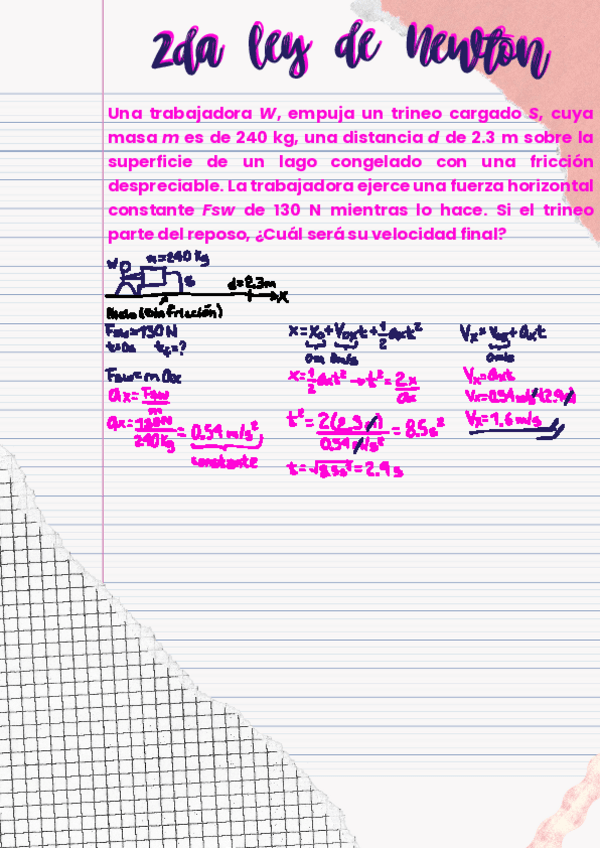 2da ley de Newton
Una trabajadora W, empuja un trineo cargado S, cuya
masa m es de 240 kg, una distancia d de 2.3 m sobre la
superficie de un lago congelado con una fricción
despreciable. La trabajadora ejerce una fuerza horizontal
constante Fsw de 130 N mientras lo hace. Si el trineo
parte del reposo, ¿Cuál será su velocidad final?
W m=240 kg
S d=2.3m
x
Hielo (sin fricción)
Fsw=130 N
t₀=0s tf=?
Fsw=m ax
ax=Fsw/m
ax=130N/240kg=0.54 m/s²
constante
x=x₀+V₀xt+½axt²
0m 0m/s
x=½axt²→t²=2x/ax
t²=2(2.3m)/0.54m/s²=8.5s²
t=√8.5s²=2.9s
Vx=V₀x+axt
0m/s
Vx=axt
Vx=0.54m/s²(2.9s)
Vx=1.6m/s